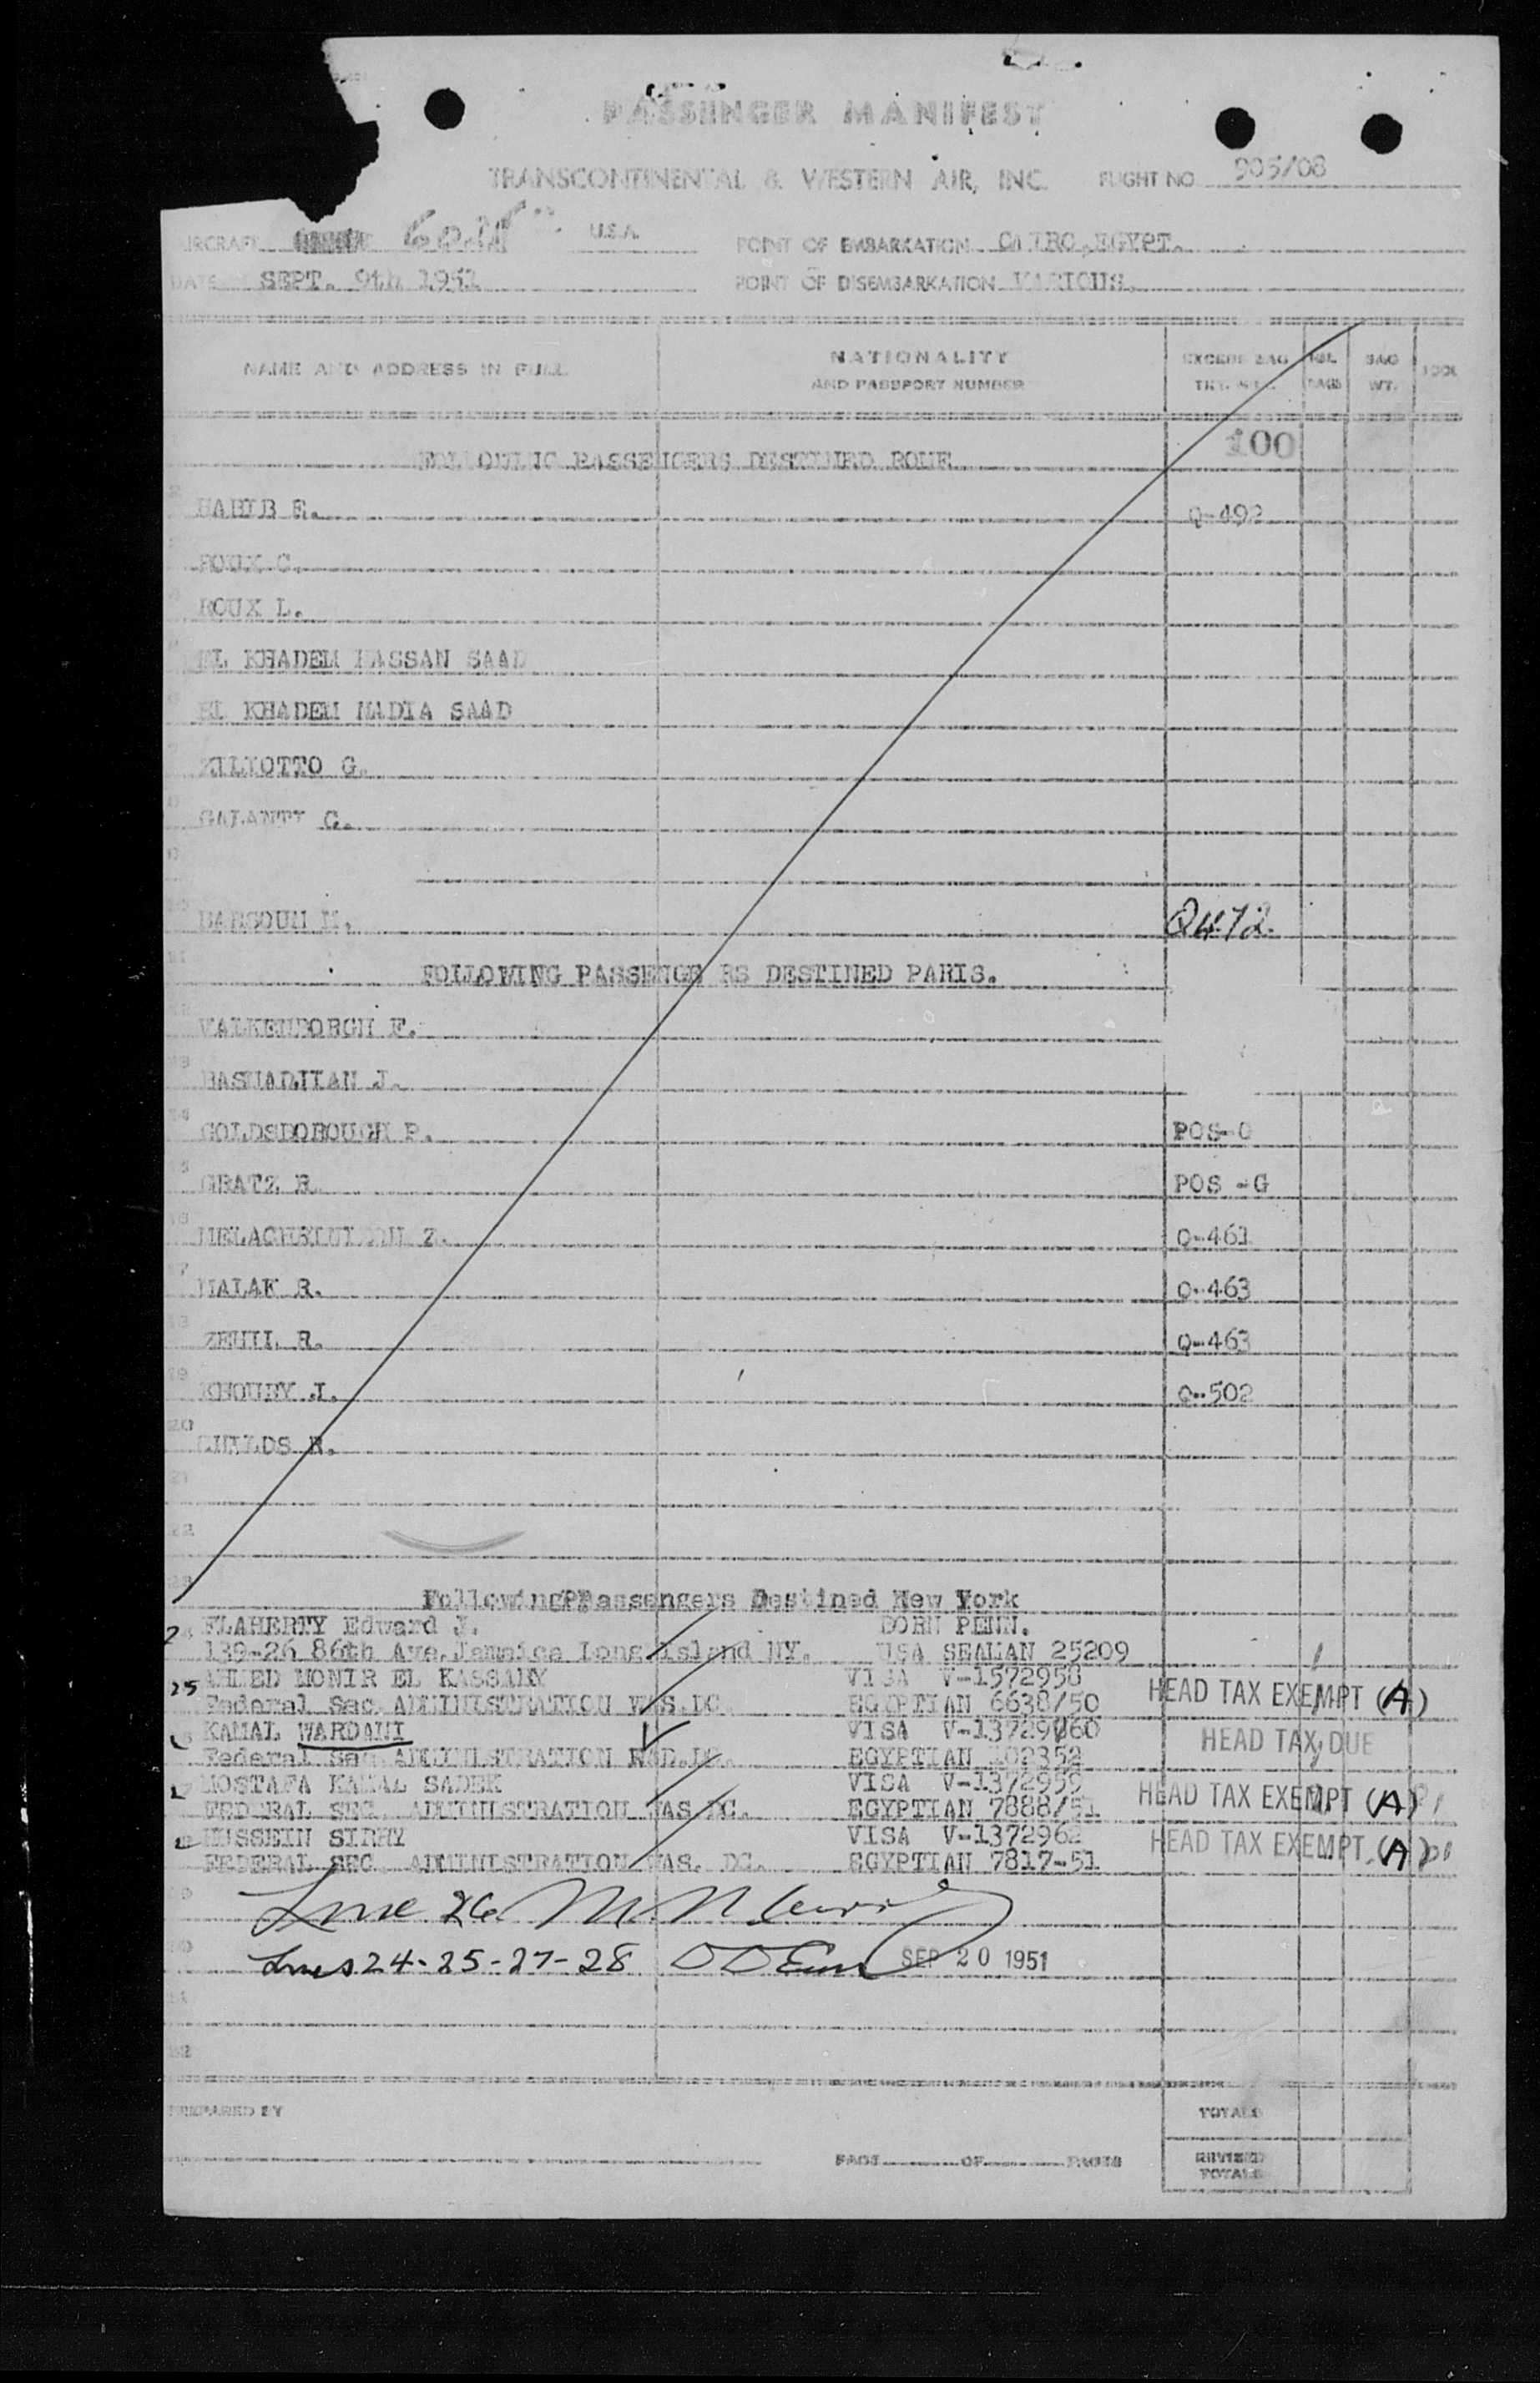 PASSENGER MANIFEST
TRANSCONTINENTAL & WESTERN AIR, INC. FLIGHT NO 905/08
AIRCRAFT U.S.A. POINT OF EMBARKATION CAIRO, EGYPT.
DATE SEPT. 9th 1951 POINT OF DISEMBARKATION VARIOUS.
NAME AND ADDRESS IN FULL NATIONALITY AND PASSPORT NUMBER EXCESS BAG BAGS BAG WT.
100
FOLLOWING PASSENGERS DESTINED ROME
HABIB E. Q-492
ROUX C.
ROUX L.
EL KHADEM HASSAN SAAD
EL KHADEM NADIA SAAD
MILIOTTO G.
GALANTI C.
BARSOUM M. Q472
FOLLOWING PASSENGE RS DESTINED PARIS.
VALKENBORGH F.
J.
GOLDSBOROUGH P. POS-O
GRATZ R. POS -G
Z. Q-461
MALAK R. Q-463
R. Q-463
KHOURY J. Q-502
20 CHILDS R.
21
22
23
FollowingPPassengers Destined New York
24 FLAHERTY Edward J. BORN PENN.
139-26 86th Ave. Jamaica Long Island NY. USA SEAMAN 25209
25 AHMED MONIR EL KASSABY VISA V-1572958
Federal Sec. ADMINISTRATION WAS.DC. EGYPTIAN 6638/50 HEAD TAX EXEMPT (A)
KAMAL WARDANI VISA V-13729060
Federal Sec ADMINISTRATION WSD.DC. EGYPTIAN 102352 HEAD TAX DUE
MOSTAFA KAMAL SADEK VISA V-1372959
FEDERAL SEC. ADMINISTRATION WAS DC. EGYPTIAN 7888/51 HEAD TAX EXEMPT (A)
HUSSEIN SIRRY VISA V-1372962
FEDERAL SEC. ADMINISTRATION WAS. DC. EGYPTIAN 7817-51 HEAD TAX EXEMPT (A)
Line 26
Lines 24-25-27-28 SEP 20 1951
PREPARED BY TOTALS
PAGE OF PAGES REVISED TOTALS